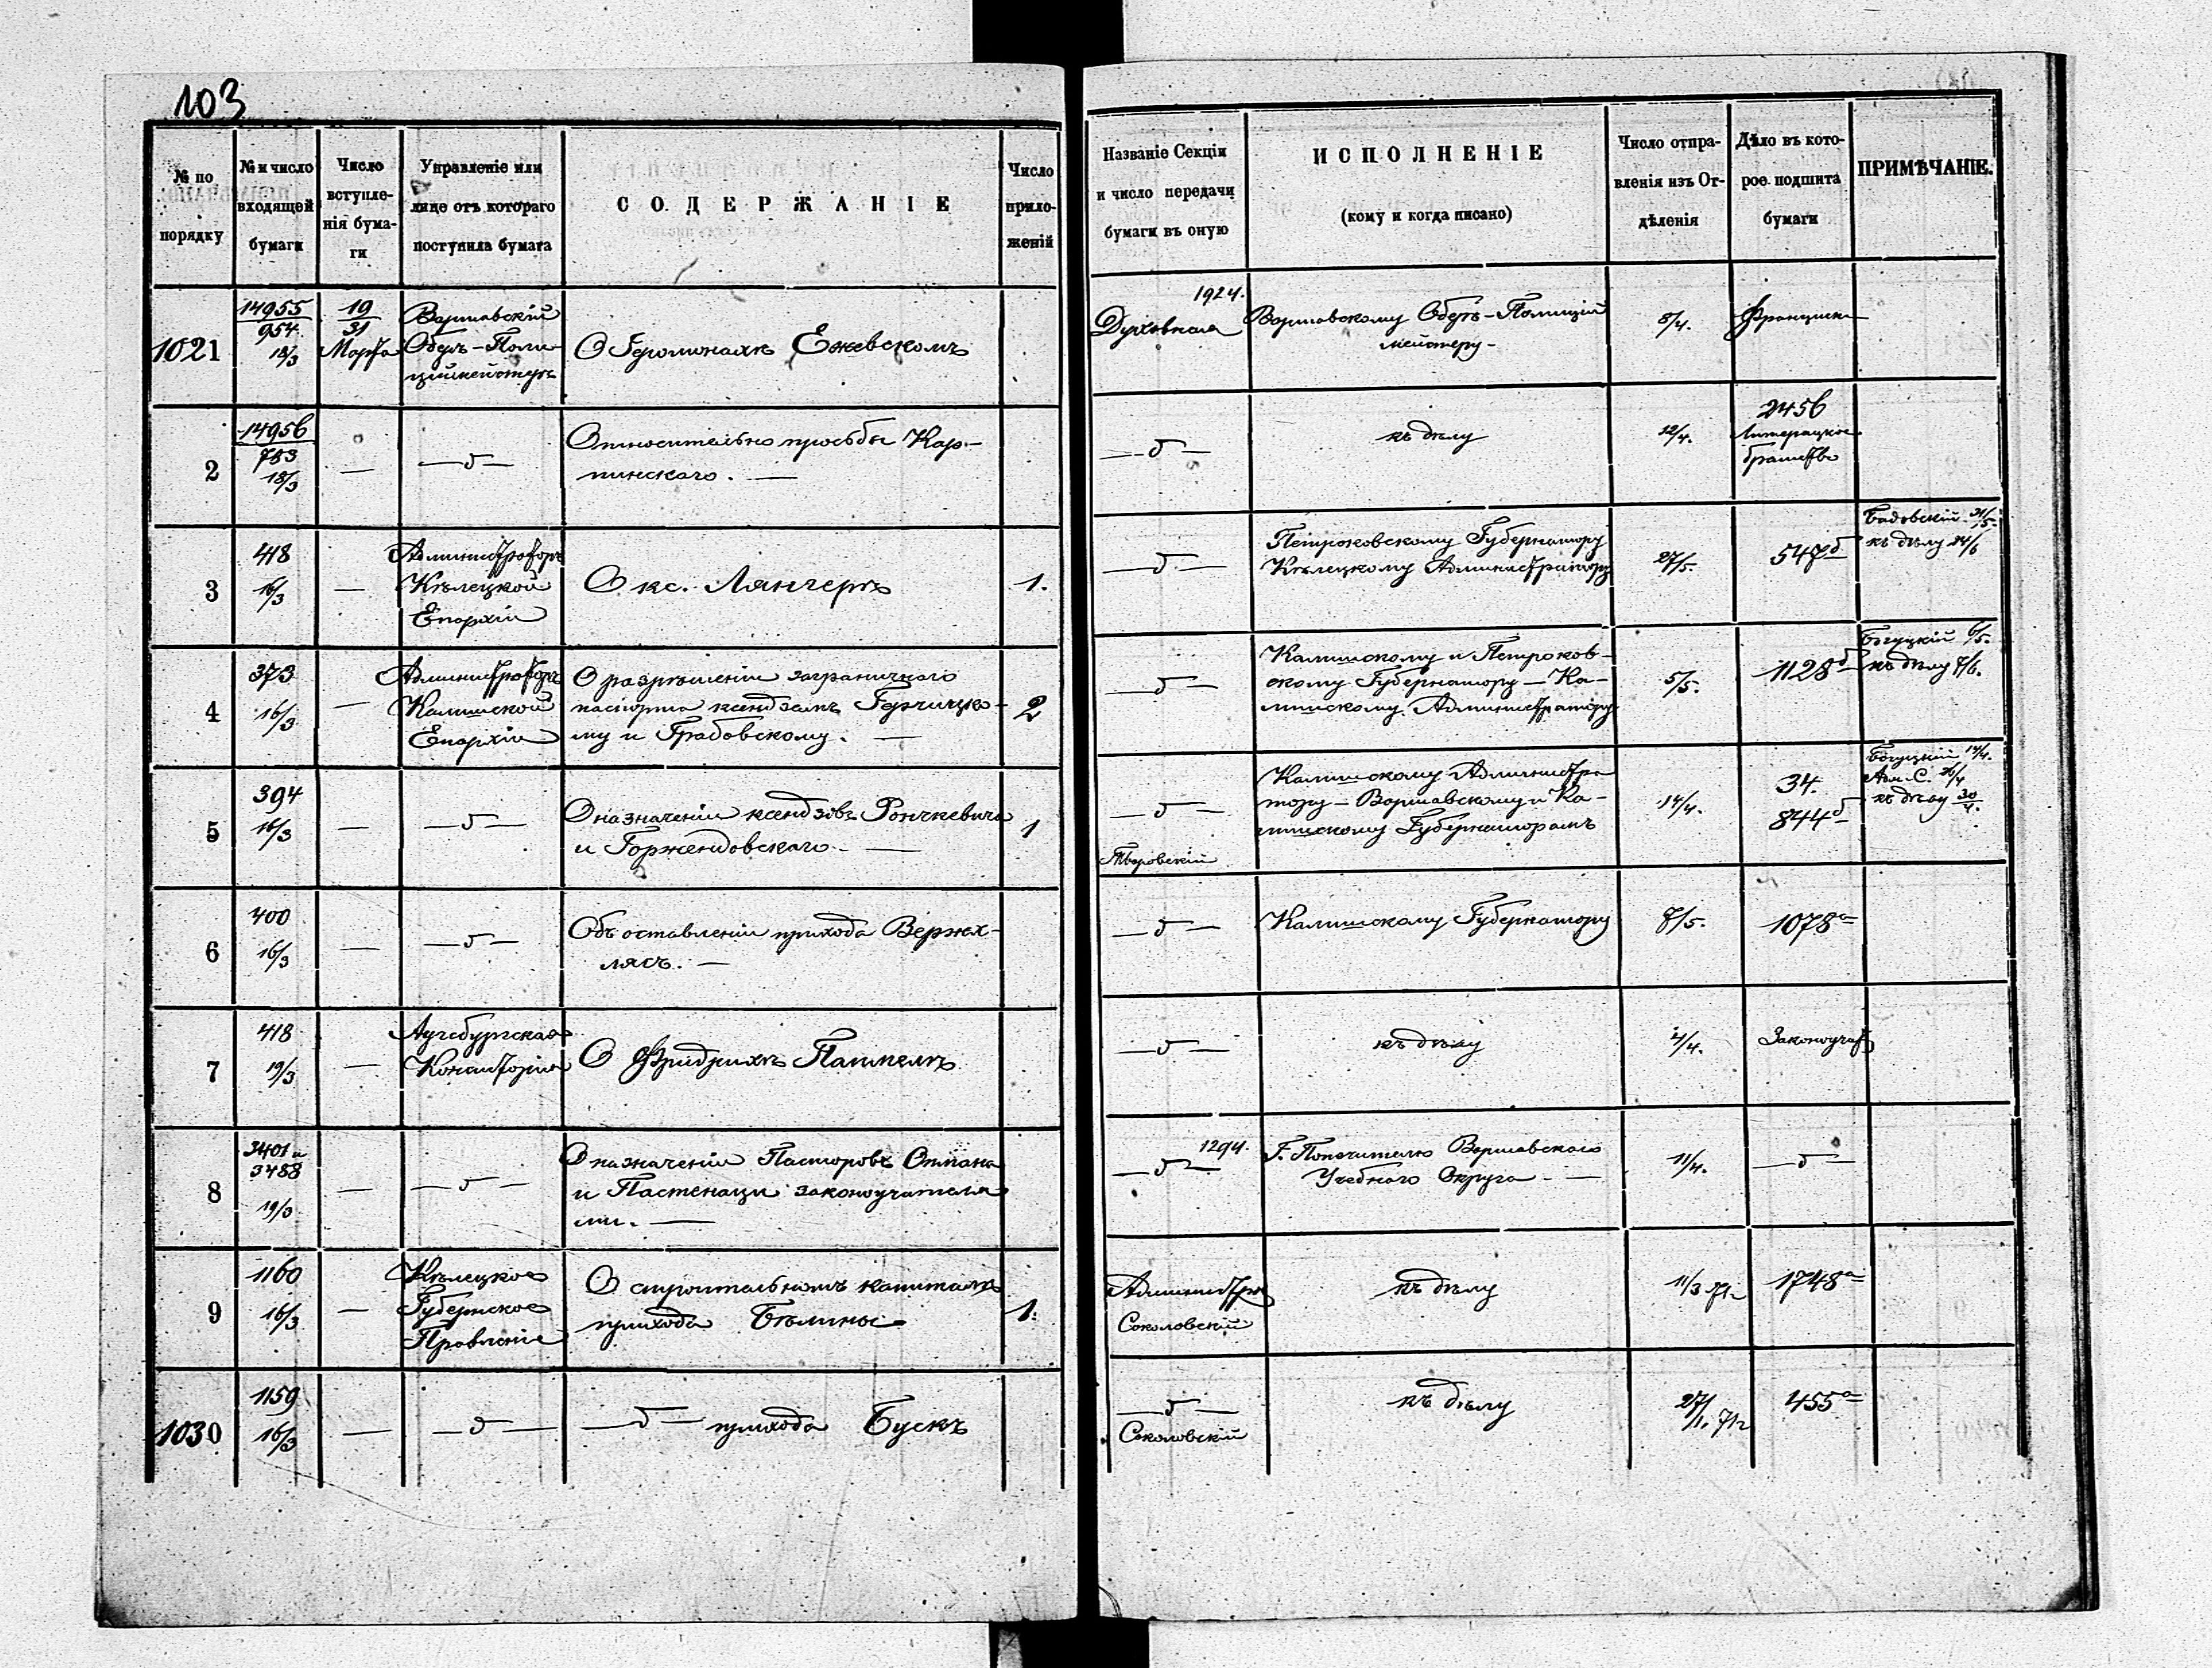 103
№ по порядку
№ и число входящей бумаги
Число вступленія бумаги
Управленіе или лице отъ котораго поступила бумага
СОДЕРЖАНІЕ
Число приложеній
Названіе Секціи и число передачи бумаги въ оную
ИСПОЛНЕНІЕ
(кому и когда писано)
Число отправленія изъ Отдѣленія
Дѣло въ которое подшита бумага
ПРИМѢЧАНІЕ.
1021
14955
954
18/3
19
31
Марта
Варшавскій
Оберъ-Поли-
ціймейстеръ
О Ежевскомъ
1924.
Духовная
Варшавскому Оберъ-Полицій
мейстеру-
8/4.
2
14956
783
18/3
—
—"—
Относительно просьбы Кар-
пинскаго. —
—"—
къ дѣлу
12/4.
2456
братство
3
418
16/3
—
Администраторъ
Кѣлецкой
Епархіи
О кс. Лянгерѣ
1.
—"—
Петроковскому Губернатору
Кѣлецкому Администратору
27/5.
547б
къ дѣлу 24/6
4
373
16/3
—
Администраторъ
Калишской
Епархіи
О разрѣшеніи заграничнаго
паспорта ксендзамъ
му и Грабовскому. —
2
—"—
Калишскому и Петроков-
скому Губернатору — Ка-
лишскому Администратору
5/5.
1128б
Богуцкій 6/5.
къ дѣлу
5
394
16/3
—
—"—
О назначеніи ксендзовъ Рончкевича
и Горжендовскаго — —
1
—"—
Калишскому Администра
тору — Варшавскому и Ка-
лишскому Губернаторамъ
14/4.
34.
844б
Богуцкій 14/4.
къ дѣлу 30/4.
6
400
16/3
—
—"—
Объ оставленіи прихода Вержх-
лясъ. —
—"—
Калишскому Губернатору
8/5.
1078а
7
418
19/3
—
Аугсбургская
Консисторія
О Фридрихѣ
—"—
къ дѣлу
4/4.
Законоучит
8
3401 и
3488
19/3
—
—"—
О назначеніи Пасторовъ Отмана
и Пастенаци законоучителя
ми. —
1294.
—"—
Г. Попечителю Варшавскаго
Учебнаго Округа — —
11/4.
—"—
9
1160
16/3
—
Кѣлецкое
Губернское
Правленіе
О строительномъ капиталѣ
прихода Бѣлины
1.
Администр
Соколовскій
къ дѣлу
11/3 71г
1748а
1030
1159
16/3
—
—"—
—"— прихода Бускъ
—"—
Соколовскій
къ дѣлу
27/1. 71г
455а